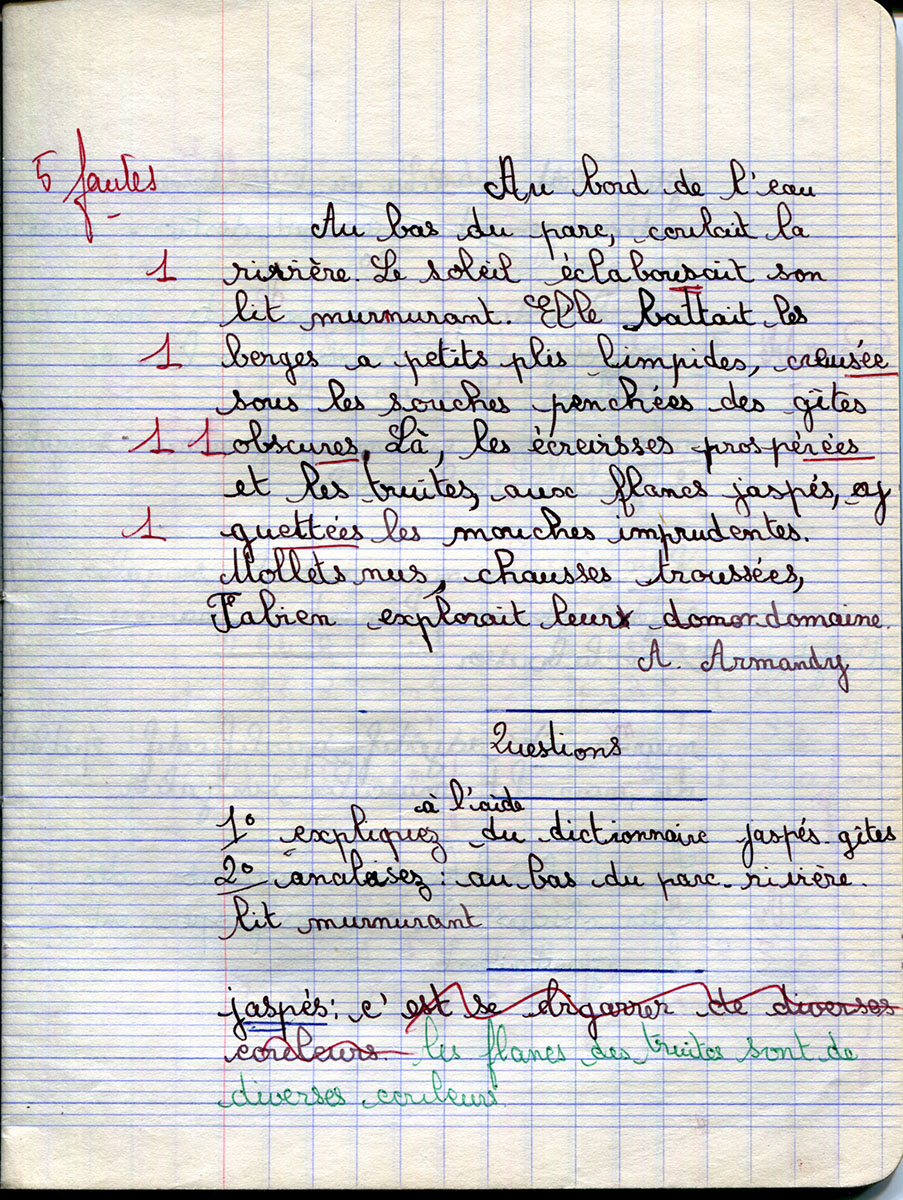 5 fautes
Au bord de l'eau
Au bas du parc, coulait la
1 rivière. Le soleil éclabousait son
lit murmurant. Elle battait les
1 berges a petits plis limpides, creusée
sous les souches penchées des gîtes
1 1 obscures. Là, les écrevisses prospérées
et les truites, aux flancs jaspés,
1 guettées les mouches imprudentes.
Mollets nus, chausses troussées,
Fabien explorait leur domaine.
A. Armandy
Questions
à l'aide
1° expliquez du dictionnaire jaspés. gîtes
2° analisez : au bas du parc. rivière.
lit murmurant
jaspés : c'est se bigarrer de diverses
couleurs les flancs des truites sont de
diverses couleurs.